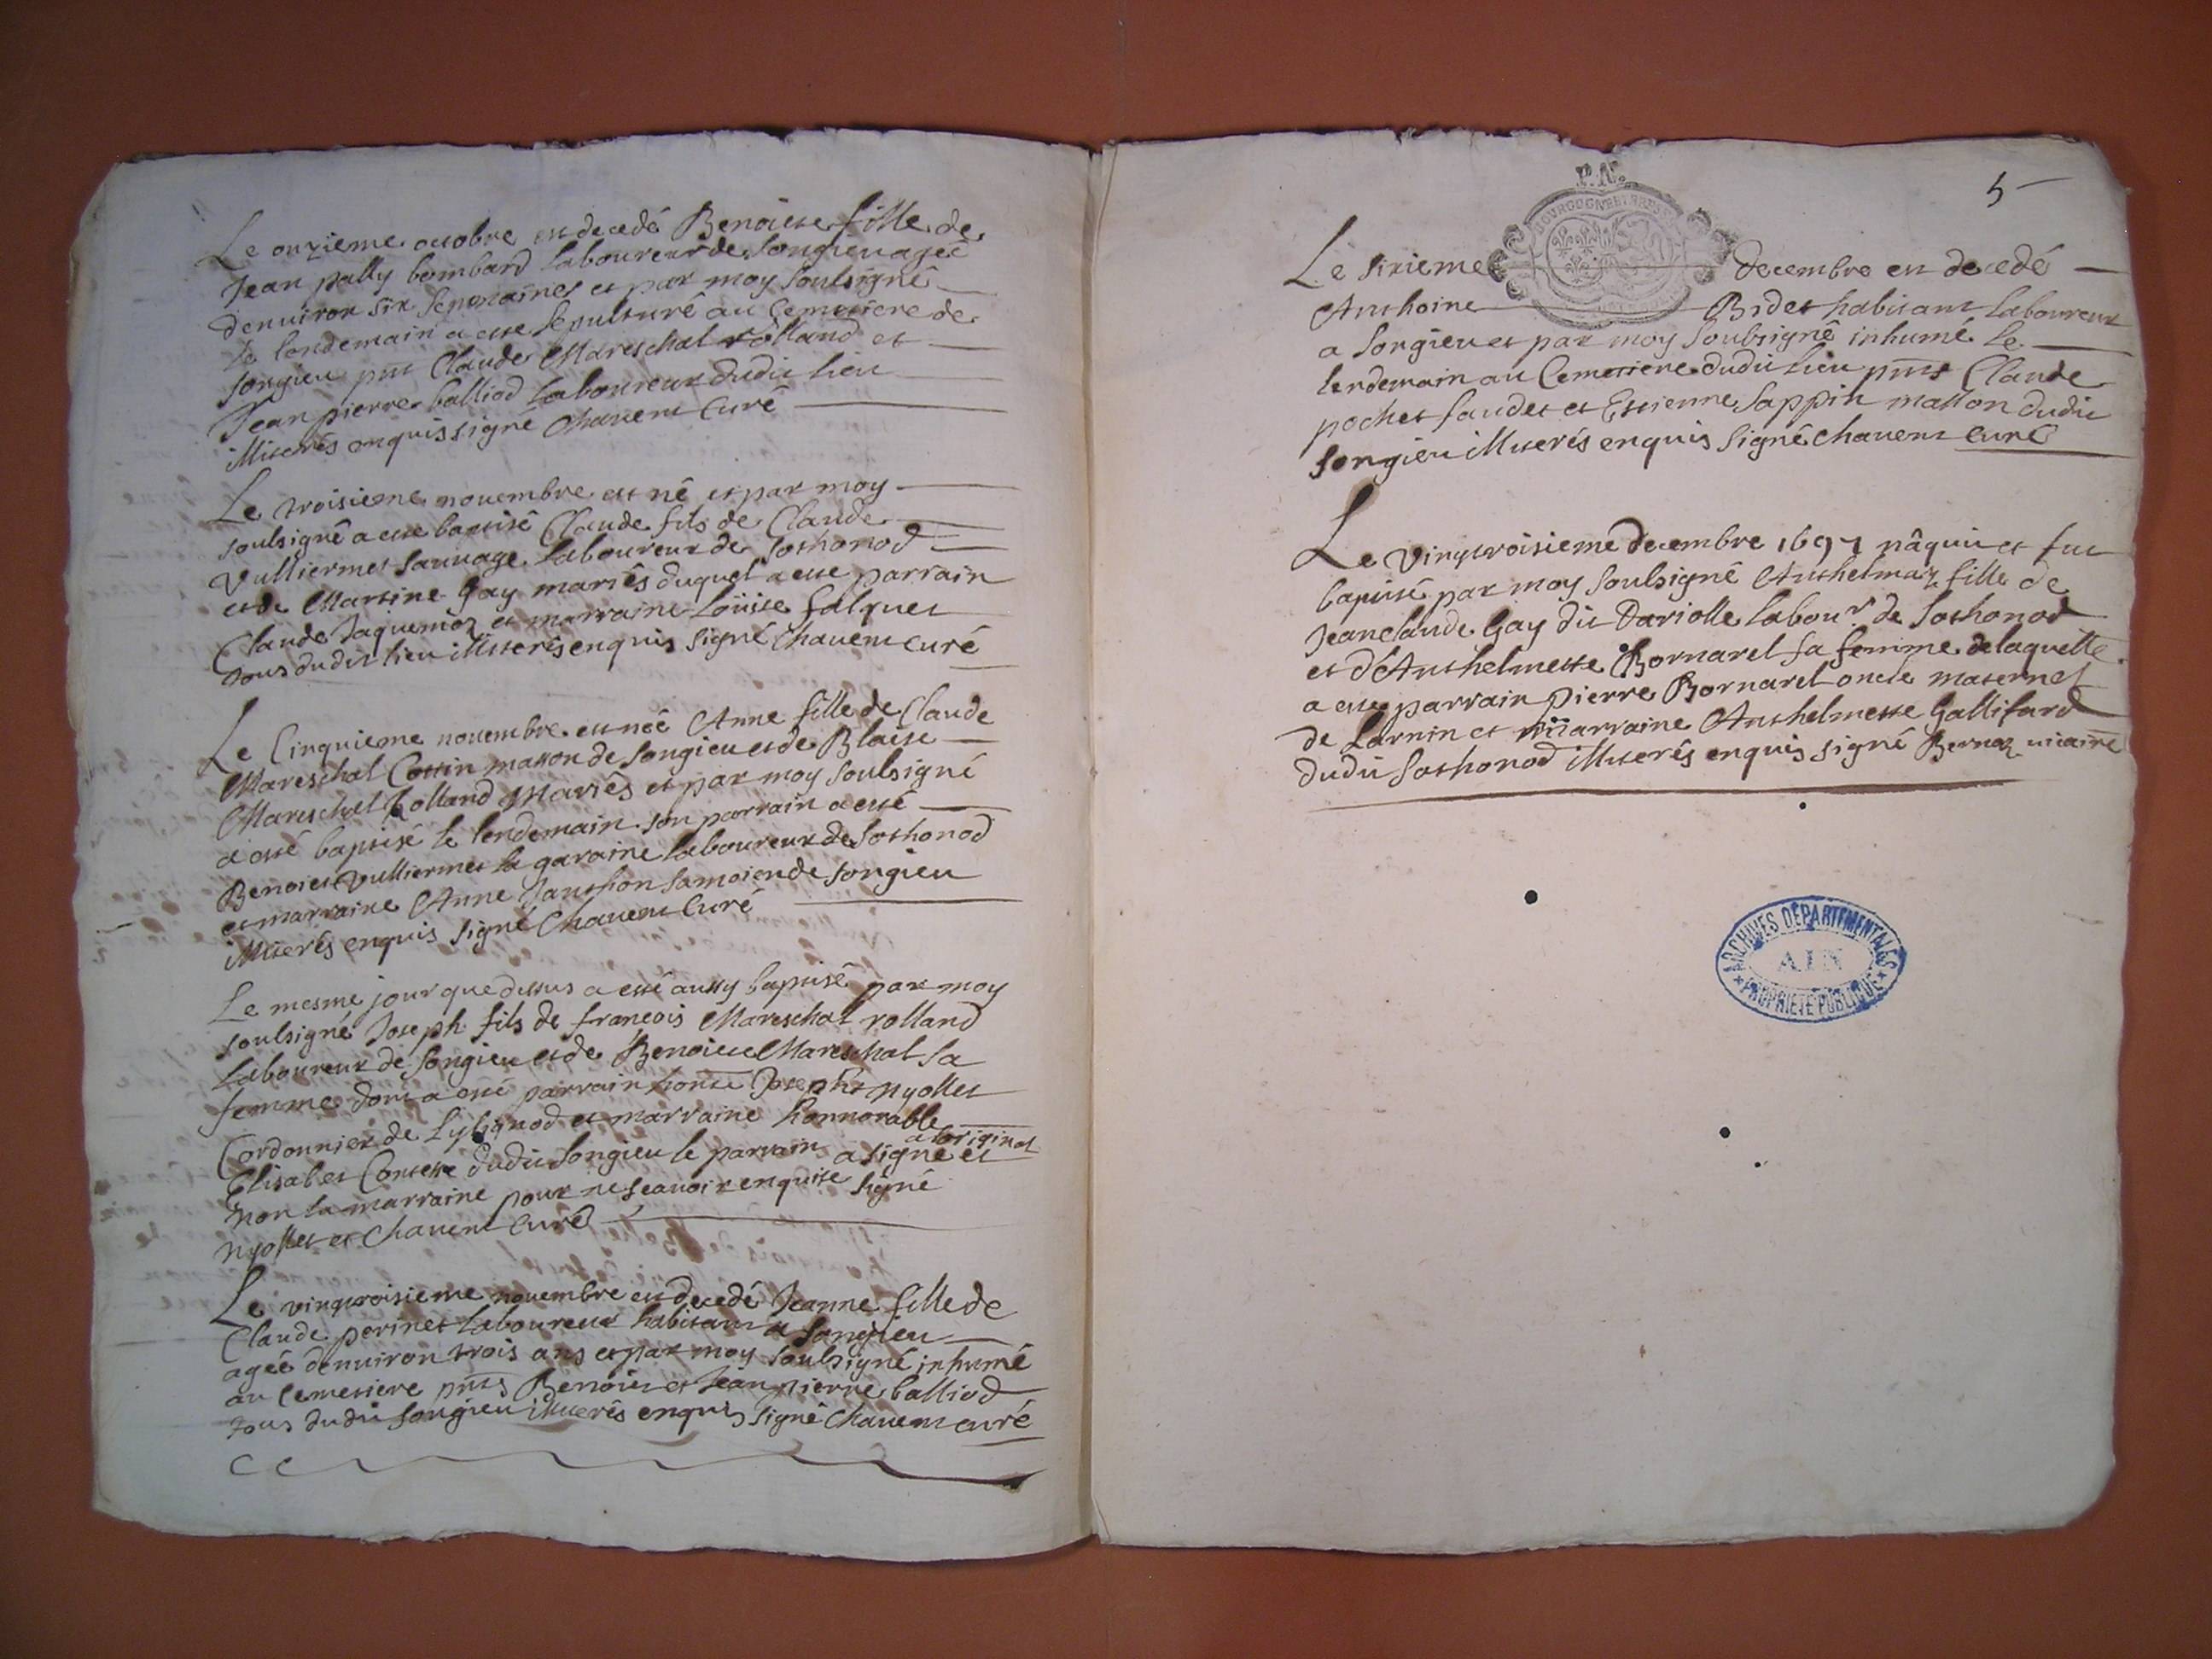 Le onzieme octobre est decedé Benoitte fille de
Jean pally bombard laboureur de Songieu agée
denuiron six semaines et par moy soubsigné
le lendemain a esté sepulturé au Cemetiere de
songieu pnt Claude Mareschal rolland et
Jean pierre balliod laboureur dudit lieu
illiterés enquis signé Chauent Curé
Le troisieme nouembre est né et par moy
soulsigné a esté baptisé Claude fils de Claude
Vulliermet sauuage laboureur de Sothonod
et de Martine Gay mariés duquel a esté parrain
Claude Jaquemoz et marraine Loüise falquet
tous dudit lieu illiterés enquis signé Chauent curé
Le Cinquieme nouembre est née Anne fille de Claude
Mareschal Cottin masson de Songieu et de Blaise
Mareschal Rolland Mariés et par moy soulsigné
a esté baptisé le lendemain son parrain a esté
Benoict Vulliermet la garaine laboureur de Sothonod
et marraine Anne Janthon samoien de songieu
illiterés enquis signé Chauent Curé
Le mesme jour que dessus a esté aussy baptisé par moy
soulsigné Joseph fils de francois Mareschal rolland
laboureur de Songieu et de Benoitte Mareschal sa
femme dont a esté parrain honte Joseph nyollet
Cordonnier de Lylignod et marraine honnorable
Elisabet Contesse dudit Songieu le parrain a signé et
a loriginal
non la marraine pour ne scauoir enquise signé
nyollet et Chauent Curé
Le vingtroisieme nouembre est decedé Jeanne fille de
Claude perinet laboureur habitant a Songieu
agée denuiron trois ans et par moy soulsigné inhumé
au Cemetiere pnts Benoict et Jean pierre balliod
tous dudit songieu illiterés enquis signé Chauent curé
P. N.
5
BOURGOGNE ET BRESSE
Le sixieme decembre est decedé
Anthoine Bidet habitant laboureur
a Songieu et par moy soubsigné inhumé le
lendemain au Cemetiere dudit lieu pnts Claude
pochet faudet et Estienne Sappin masson dudit
songieu illiterés enquis signé Chauent Curé
Le vingtroisieme decembre 1697 nâquit et fut
baptisé par moy soulsigné Anthelmaz fille de
Jeanclaude Gay dit Dariolle labour de Sothonod
et d'Anthelmette Bornarel sa femme de laquelle
a esté parrain pierre Bornarel oncle maternel
de Larnin et marraine Anthelmette Gallifard
dudit Sothonod illiterés enquis signé Bernaz uicaire
ARCHIVES DÉPARTEMENTALES
AIN
PROPRIÉTÉ PUBLIQUE